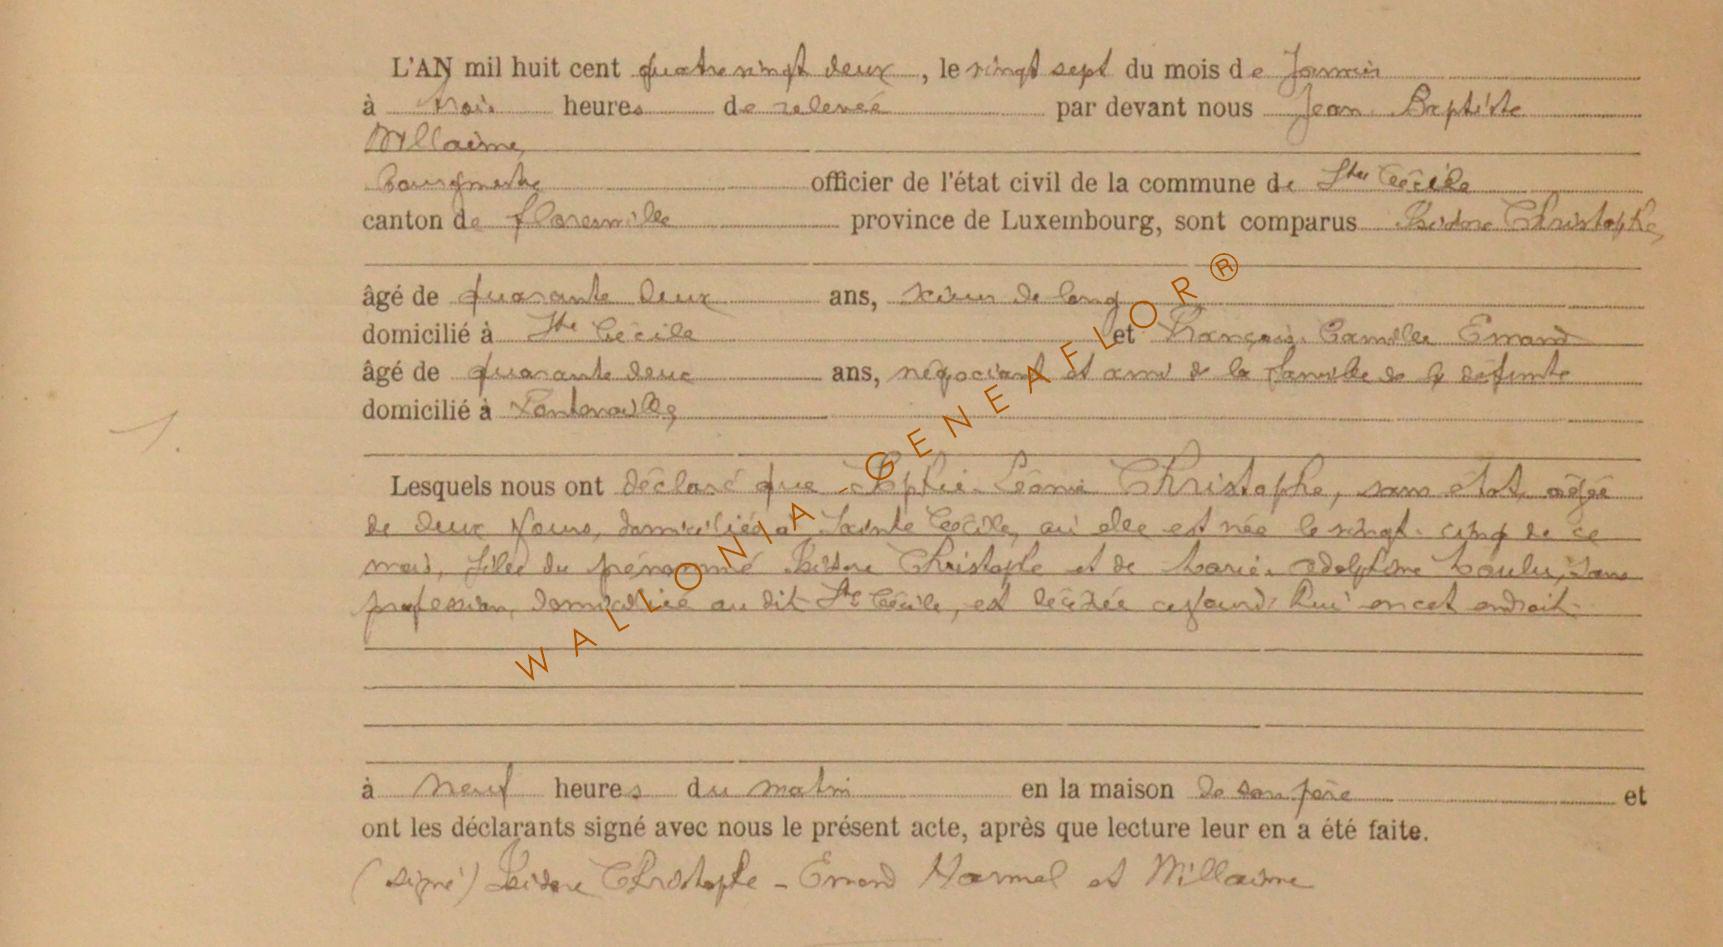 L'AN mil huit cent quatre vingt deux, le vingt sept du mois de Janvier
à trois heures de relevée par devant nous Jean Baptiste
Willaime,
Bourgmestre officier de l'état civil de la commune de Ste Cécile
canton de florenville province de Luxembourg, sont comparus Isidore Christophe,
âgé de quarante deux ans, scieur de long
domicilié à Ste Cécile et François Camille Emond
âgé de quarante deux ans, négociant et ami de la famille de la défunte
domicilié à Fontenoille,
1.
Lesquels nous ont déclaré que Sophie Léonie Christophe, sans état, agée
de deux jours, domiciliée à Sainte Cécile, où elle est née le vingt-cinq de ce
mois, fille du prénommé Isidore Christophe et de Marie Adolphine sans
profession, domiciliée au dit Ste Cécile, est décédée cejourd'hui en cet endroit
à neuf heures du matin en la maison de son père et
ont les déclarants signé avec nous le présent acte, après que lecture leur en a été faite.
(signé) Isidore Christophe - Emond Harmel et Willaime
WALLONIA - GENEAFLOR®